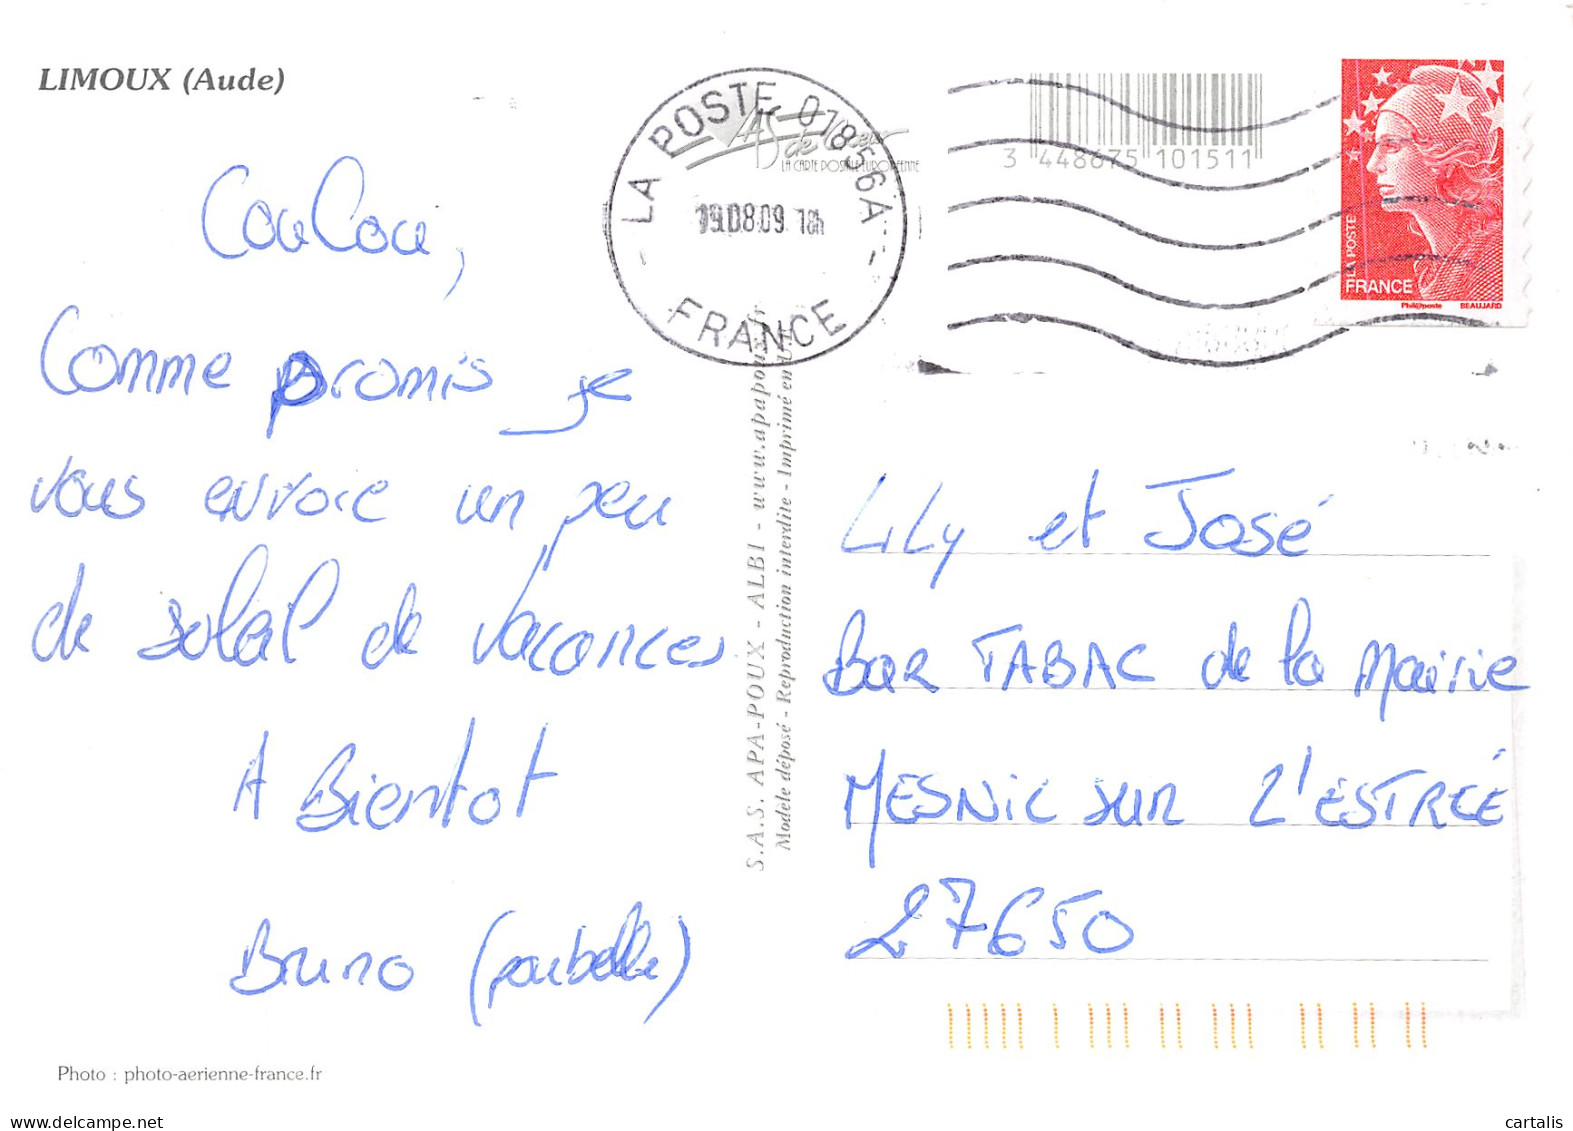 LIMOUX (Aude)
Coucou,
Comme promis je
vous envoie un peu
de soleil de vacances
A Bientot
Bruno (poubelle)
Photo : photo-aerienne-france.fr
LA POSTE 01856A
19.08.09 18h
FRANCE
LA CARTE POSTALE EUROPEENNE
3 448675 101511
LA POSTE
FRANCE
Phil@poste BEAUJARD
S.A.S. APA-POUX - ALBI - www.apapoux
Modèle déposé - Reproduction interdite - Imprimé en
LiLy et José
Bar TABAC de la Mairie
MESNIL SUR L'ESTRÉE
27650
cartalis